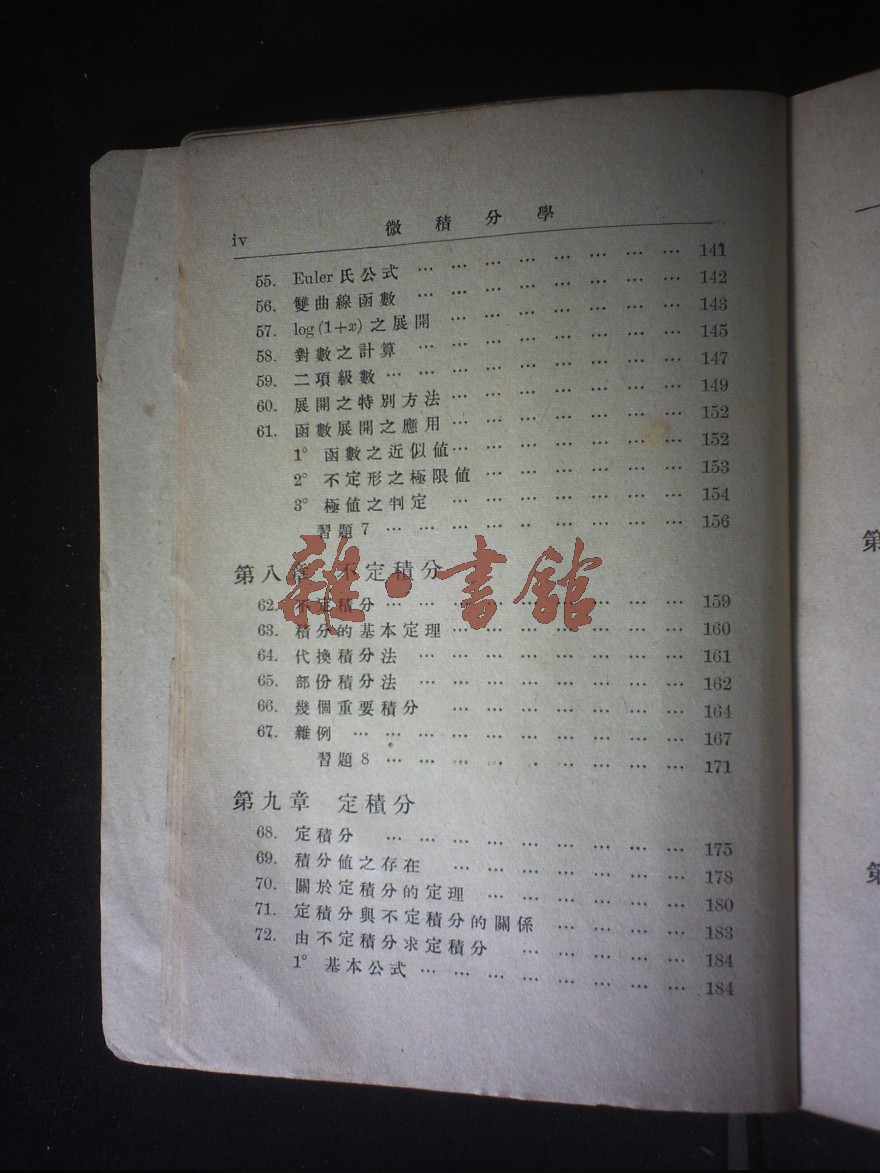 iv 微積分學
55. Euler氏公式 … … … … … … … … 141
56. 雙曲線函數 … … … … … … … … 142
57. log(1+x)之展開 … … … … … … … 143
58. 對數之計算 … … … … … … … … 145
59. 二項級數 … … … … … … … … … 147
60. 展開之特別方法 … … … … … … … 149
61. 函數展開之應用 … … … … … … … 152
1° 函數之近似値 … … … … … … … 152
2° 不定形之極限値 … … … … … … 153
3° 極値之判定 … … … … … … … 154
習題7 … … … … … … … … … 156
第八章 不定積分
62. 不定積分 … … … … … … … … … 159
63. 積分的基本定理 … … … … … … … 160
64. 代換積分法 … … … … … … … … 161
65. 部份積分法 … … … … … … … … 162
66. 幾個重要積分 … … … … … … … 164
67. 雜例 … … … … … … … … … … 167
習題8 … … … … … … … … … 171
第九章 定積分
68. 定積分 … … … … … … … … … 175
69. 積分値之存在 … … … … … … … 178
70. 關於定積分的定理 … … … … … … 180
71. 定積分與不定積分的關係 … … … … 183
72. 由不定積分求定積分 … … … … … 184
1° 基本公式 … … … … … … … … 184
雜·書館
第
第